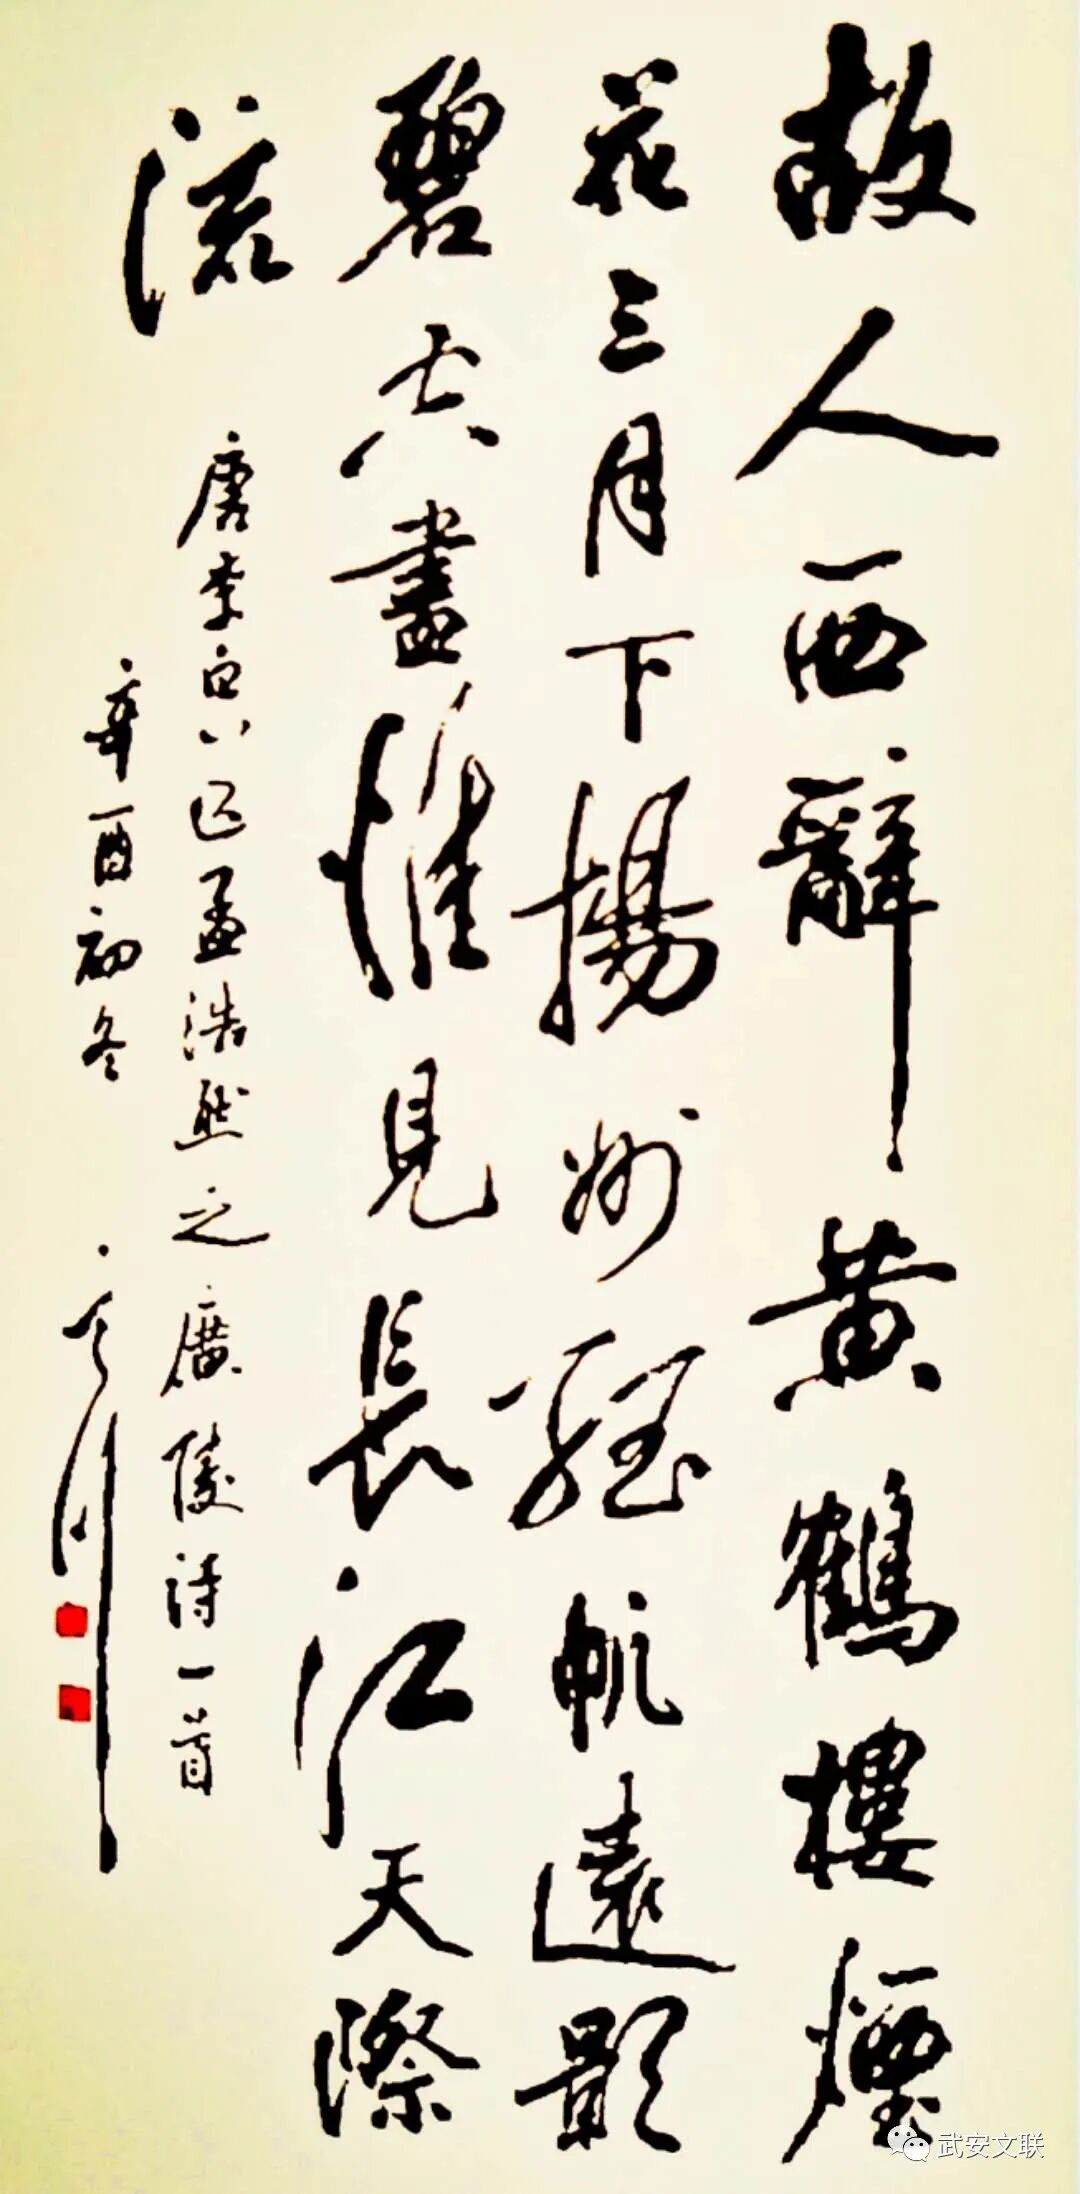 故人西辭黄鶴樓煙
花三月下揚州孤帆遠影
碧空盡惟見長江天際
流
唐李白送孟浩然之廣陵詩一首
辛酉初冬
武安文联